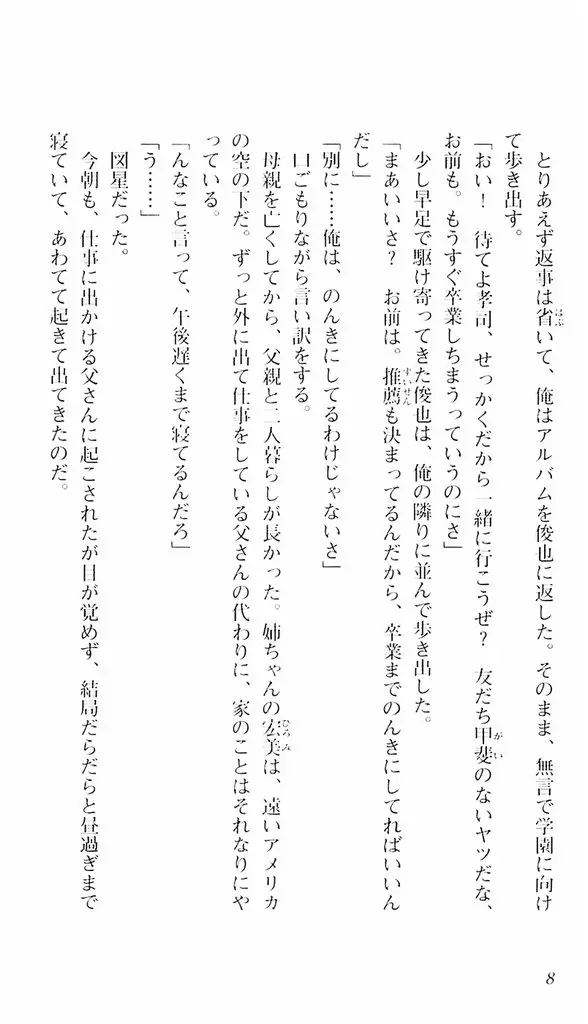 とりあえず返事は省いて、俺はアルバムを俊也に返した。そのまま、無言で学園に向け
て歩き出す。
「おい！　待てよ孝司、せっかくだから一緒に行こうぜ？　友だち甲斐のないヤツだな、
お前も。もうすぐ卒業しちまうっていうのにさ」
少し早足で駆け寄ってきた俊也は、俺の隣りに並んで歩き出した。
「まあいいさ？　お前は。推薦も決まってるんだから、卒業までのんきにしてればいいん
だし」
「別に……俺は、のんきにしてるわけじゃないさ」
口ごもりながら言い訳をする。
母親を亡くしてから、父親と二人暮らしが長かった。姉ちゃんの宏美は、遠いアメリカ
の空の下だ。ずっと外に出て仕事をしている父さんの代わりに、家のことはそれなりにや
っている。
「んなこと言って、午後遅くまで寝てるんだろ」
「う……」
図星だった。
今朝も、仕事に出かける父さんに起こされたが目が覚めず、結局だらだらと昼過ぎまで
寝ていて、あわてて起きて出てきたのだ。
8